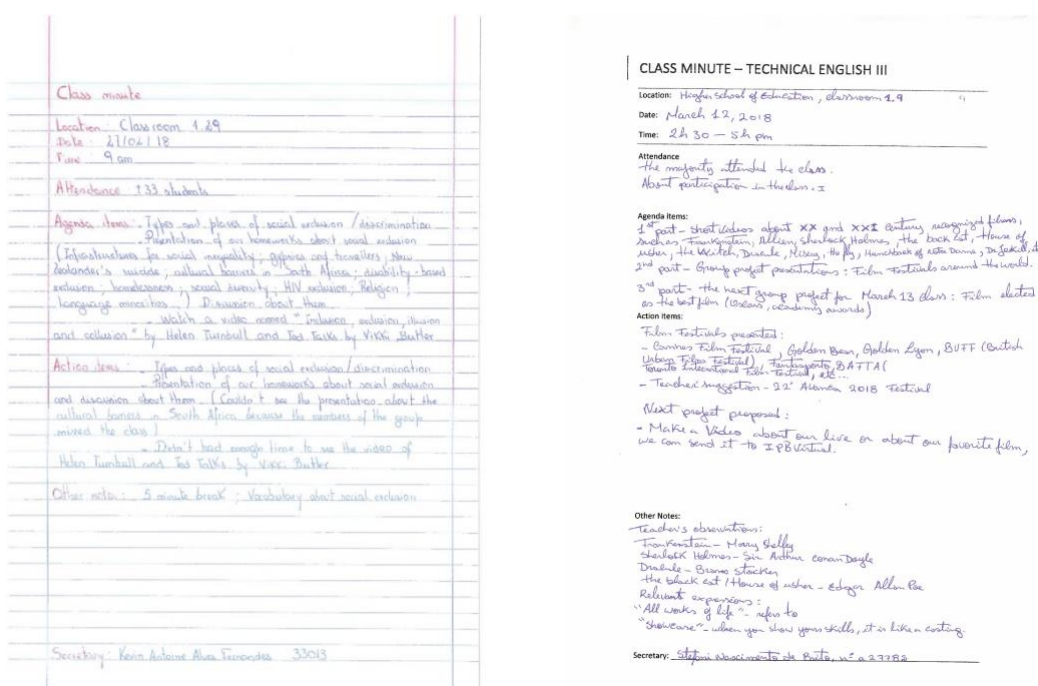 Class minute
Location : Classroom 1.29
Date : 27/02/18
Time : 9 am
Attendance : ±33 students
Agenda items : - Types and places of social exclusion / discrimination
- Presentation of our homeworks about social exclusion
(Infrastructures for social inequality ; gypsies and travellers ; New
Zealander's suicide ; cultural barriers in South Africa ; disability-based
exclusion ; homelessness ; sexual diversity ; HIV exclusion ; Religion ;
language minorities ) Discussion about them.
- Watch a video named "Inclusion, exclusion, illusion
and collusion" by Helen Turnbull and Ted Talks by Vikki Butler
Action items : - Types and places of social exclusion / discrimination
- Presentation of our homeworks about social exclusion
and discussion about them. (Couldn't see the presentation about the
cultural barriers in South Africa because the members of the group
missed the class)
- Didn't had enough time to see the video of
Helen Turnbull and Ted Talks by Vikki Butler
Other notes : 5 minute break ; Vocabulary about social exclusion
Secretary : Kevin Antoine Alves Fernandes 33013
CLASS MINUTE – TECHNICAL ENGLISH III
Location: Higher School of Education, classroom 1.9
Date: March 12, 2018
Time: 2h 30 – 5h pm
Attendance
the majority attended the class.
About participation in the class.
Agenda items:
1st part - short videos about XX and XXI century, recognized films,
such as Frankenstein, Allien, Sherlock Holmes, the back cat, House of
usher, the Witch, Dracule, Misery, the fly, Hunchback of Notre Dame, Dr. Jekill,
2nd part – Group project presentations : Film Festivals around the world.
3rd part - the next group project for March 13 class : Film elected
as the best film (Oscars, academy awards)
Action items:
Film Festivals presented :
- Cannes Film Festival, Golden Bear, Golden Lyon, BUFF (British
Urban Films Festival), Fantasporto, BAFTA (
Toronto International Film Festival, etc...
- Teacher suggestion - 22º 2018 Festival
Next project proposed :
- Make a Video about our live or about our favorite film,
we can send it to IPB Virtual.
Other Notes:
Teacher's observations:
Frankenstein – Marry Shelley
Sherlock Holmes – Sir Arthur Conan Doyle
Dracule – Bramo Stocker
the black cat / House of usher – Edgar Allan Poe
Relevant expressions :
"All works of life" – refers to
"showcase" – when you show yours skills, it is like a casting.
Secretary: Stefani Nascimento de Brito, nº a 27782